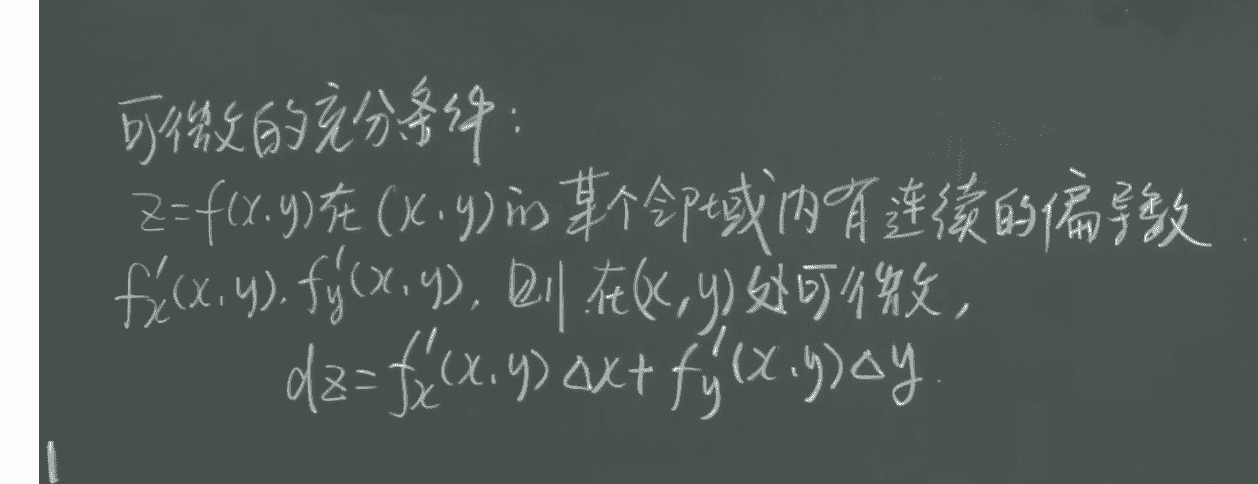 可微的充分条件:
z=f(x.y)在(x.y)的某个邻域内有连续的偏导数
f'x(x,y).f'y(x,y),则在(x,y)处可微,
dz=f'x(x.y)Δx+f'y(x.y)Δy.